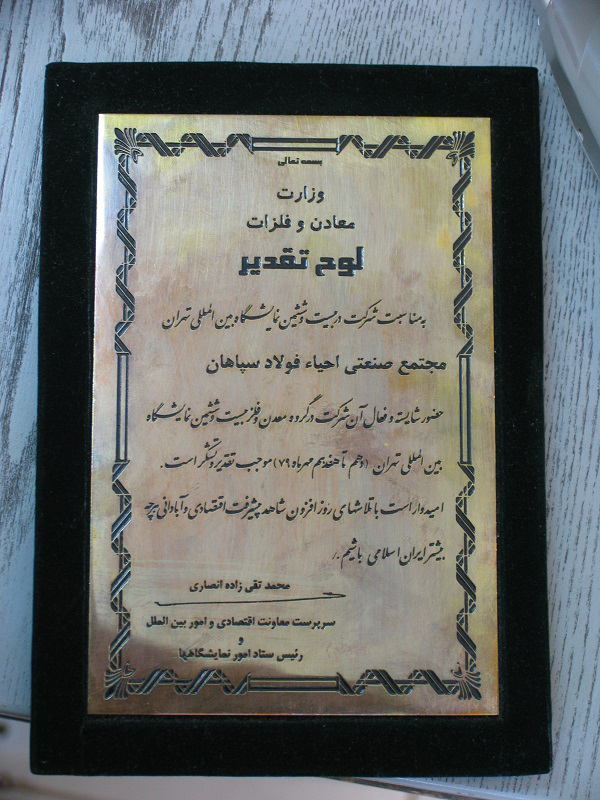 بسمه تعالی
وزارت
معادن و فلزات
لوح تقدیر
به مناسبت شرکت در بیست و ششمین نمایشگاه بین المللی تهران
مجتمع صنعتی احیاء فولاد سپاهان
حضور شایسته و فعال آن شرکت در گروه معدن و فلز بیست و ششمین نمایشگاه
بین المللی تهران (دهم تا هفدهم مهرماه ۷۹) موجب تقدیر و تشکر است.
امیدوار است با تلاشهای روزافزون شاهد پیشرفت اقتصادی و آبادانی هرچه
بیشتر ایران اسلامی باشیم./
محمد تقی زاده انصاری
سرپرست معاونت اقتصادی و امور بین الملل
و
رئیس ستاد امور نمایشگاهها